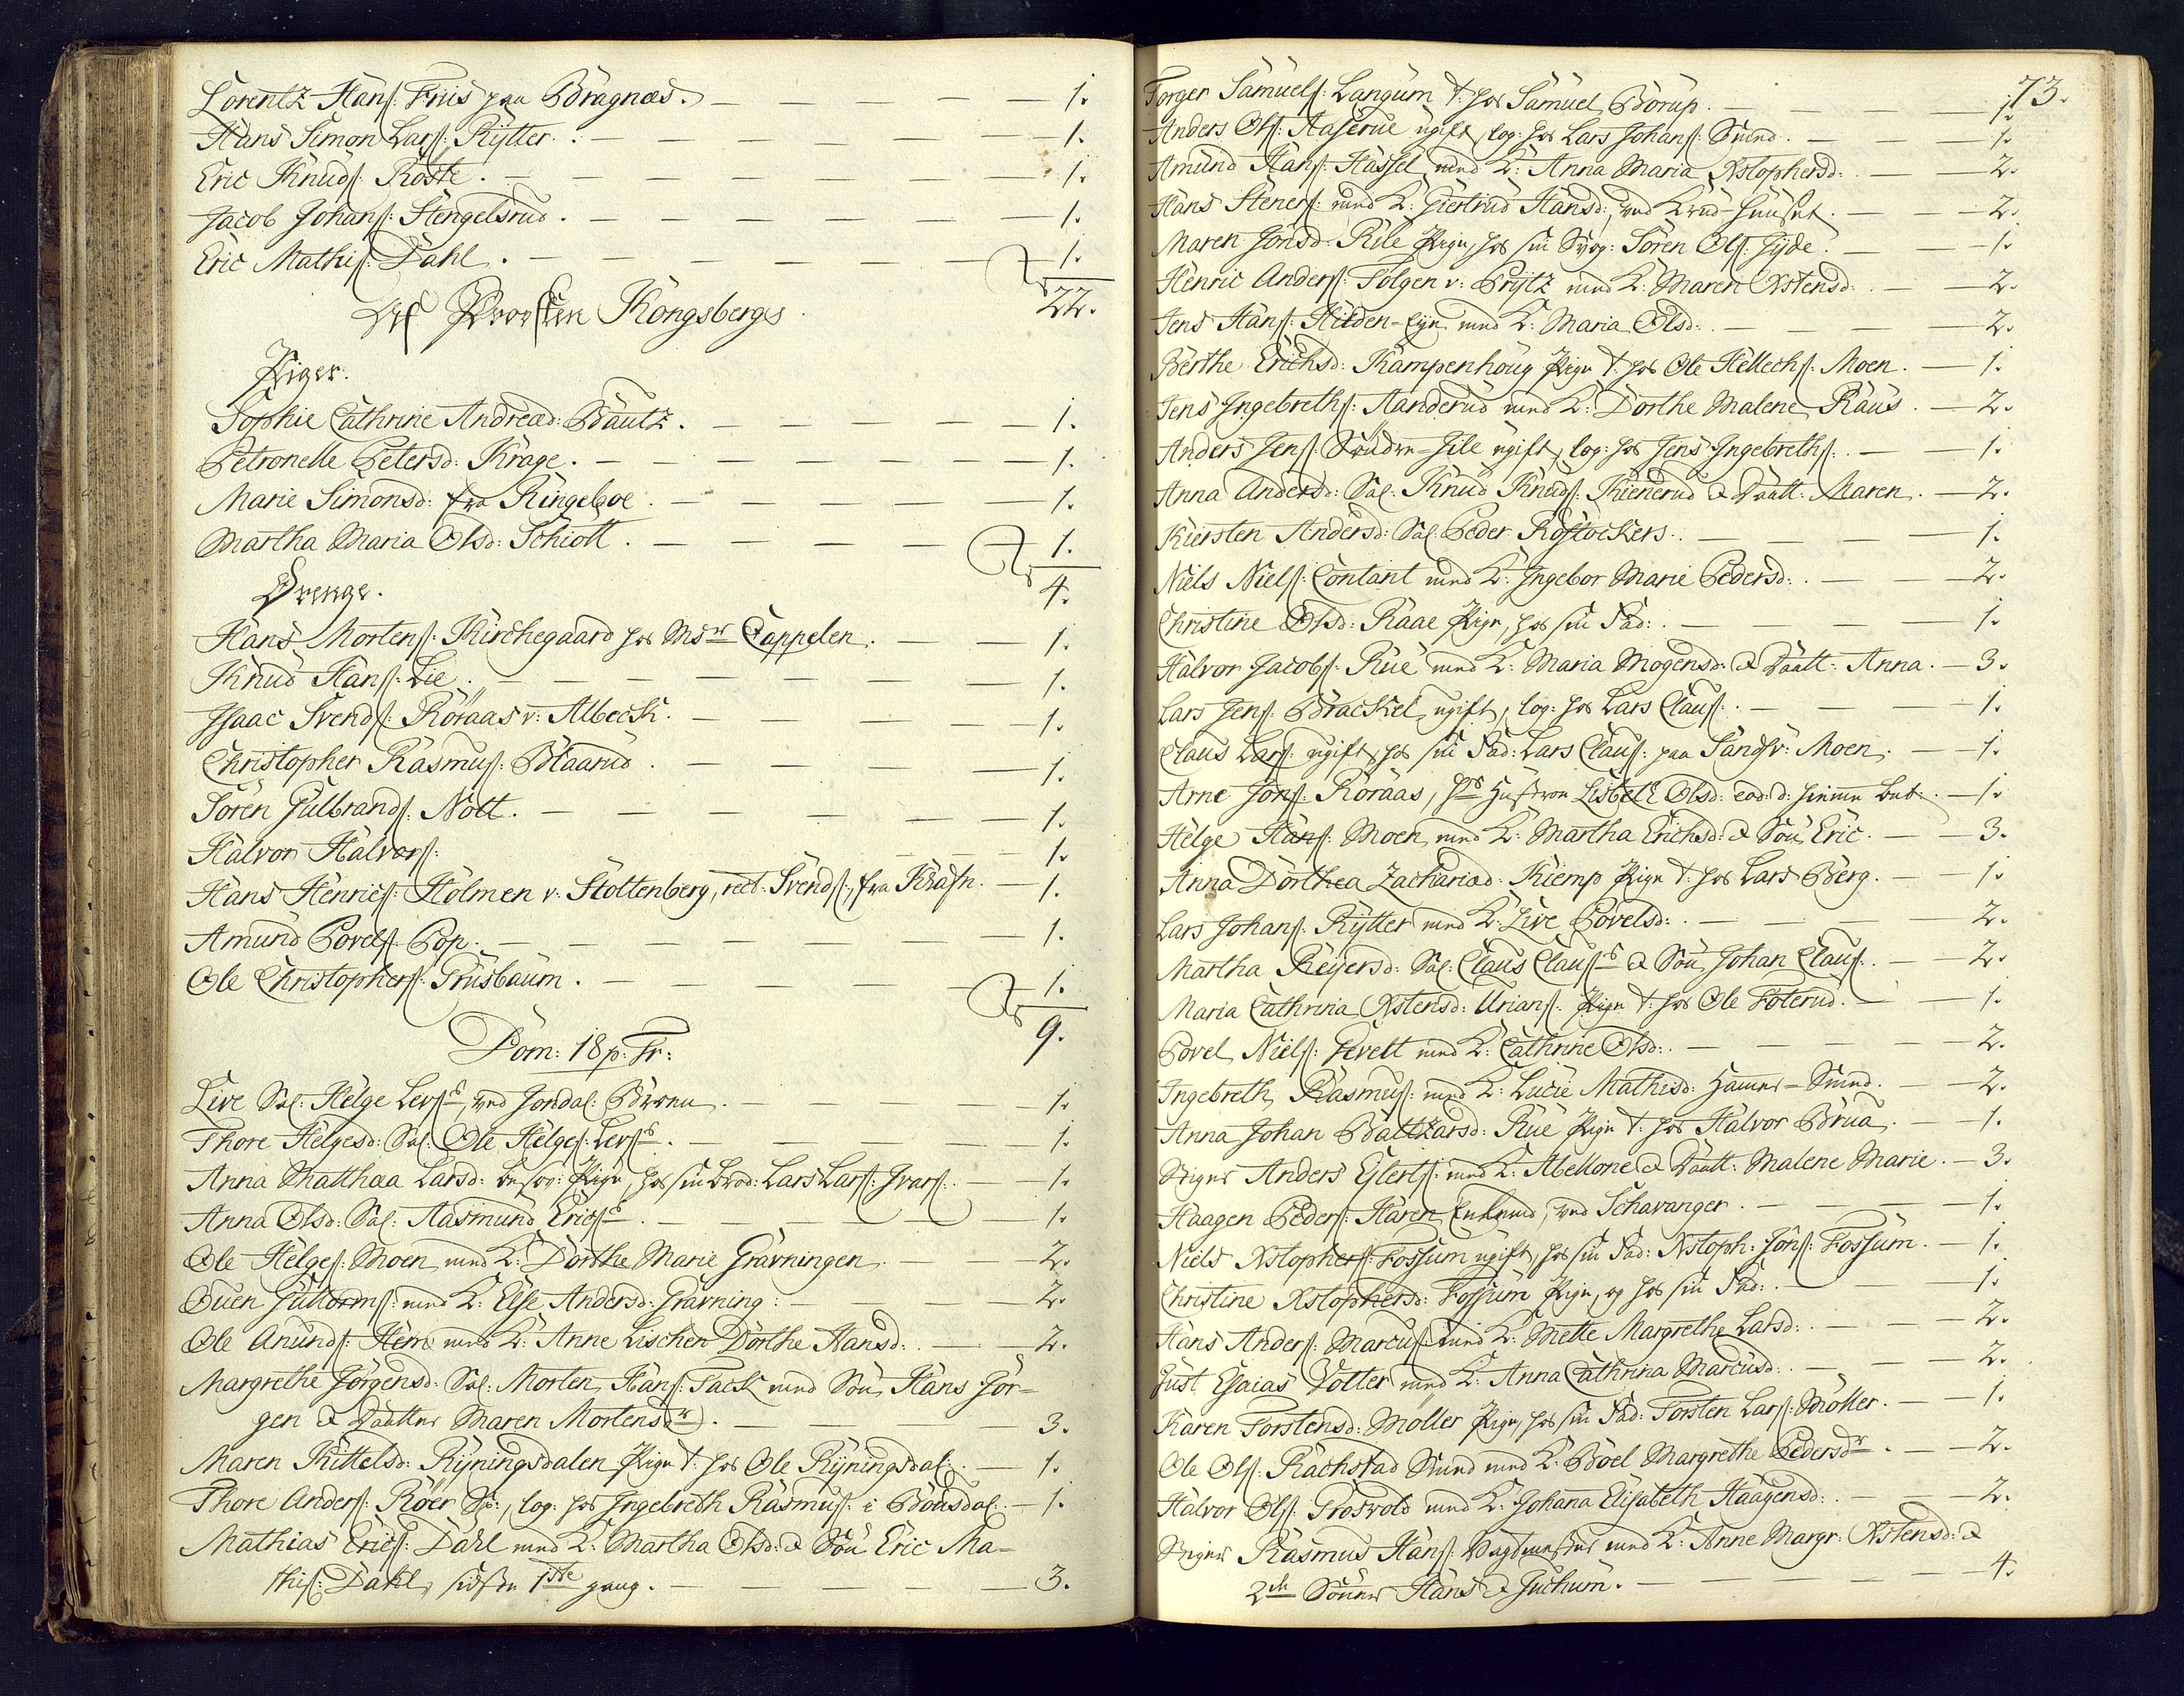 Lorentz Hanſ: Friis paa Bragnæs. — 1.
Hans Simon Larſ: Rytter. — 1.
Eric Knudſ: Koste. — 1.
Jacob Johanſ: Stengelsrud. — 1.
Eric Mathiſ: Dahl. — 1.
22.
Kongsbergs.
Piger.
Sophie Cathrine Andread: Bautz. — 1.
Petronelle Petersd: Krage. — 1.
Marie Simonsd: fra Ringeboe. — 1.
Martha Maria Olsd: Schiött. — 1.
4.
Drenge.
Hans Mortenſ: Kirchegaard hos Msr Cappelen. — 1.
Knud Hanſ: Lie. — 1.
Iſaac Svendſ: Röraas v: Albeck. — 1.
Christopher Rasmuſ: Blaarud. — 1.
Sören Gulbrandſ: Nott. — 1.
Halvor Halvorſ: — 1.
Hans Henricſ: Holmen v: Stoltenberg, rect: Svendſ:, fra — 1.
Amund Povelſ: Pop. — 1.
Ole Christopherſ: Grüsbaum. — 1.
9.
Dom: 18 p: Tr:
Live Sal: Helge Lerſs ved Jondal: Broen. — 1.
Thore Helgesd: Sal: Ole Helgeſ: Lerſs. — 1.
Anna Matthæa Larsd: besov: Pige, hos sin Brod: Lars Larſ: Ivarſ: — 1.
Anna Olsd: Sal: Aasmund Ericſs. — 1.
Ole Helgeſ: Moen med K: Dorthe Marie Grävningen. — 2.
Ouen Guttormſ: med K: Else Andersd: Grarning: — 2.
Ole Amundſ: Hem med K: Anne Lischen Dorthe Hansd: — 2.
Margrethe Jörgensd: Sal: Morten Hanſ: Sack med Sön Hans Jör=
gen & Daatter Maren Mortensdr). — 3.
Maren Kittelsd: Ryningsdalen Pige t: hos Ole Ryningsdal. — 1.
Thore Anderſ: Röer log: hos Ingebreth Rasmuſ: i — 1.
Mathias Ericſ: Dahl med K: Martha Olsd: & Sön Eric Ma=
thiſ: Dahl, sidste 1ste gang. — 3.
73.
Torger Samuelſ: Langum t: hos Samuel Borup. — 1.
Anders Olſ: Aaserue ugift, log: hos Lars Johanſ: Smed. — 1.
Amund Hanſ: Hassel med K: Anna Maria Xstophersd: — 2.
Hans Stenerſ: med K: Giertrud Hansd:, ved Krud-Huuset. — 2.
Maren Jonsd: Rile Pige, hos sin Svog: Sören Olſ: Gyde. — 1.
Henric Anderſ: Folgen v: Prytz med K: Maren Xstensd: — 2.
Jens Hanſ: Hilden=Eye med K: Maria Olsd: — 2.
Berthe Erichsd: Kampenhoug Pige t: hos Ole Hellechſ: Moen. — 1.
Jens Ingebrethſ: Aanderud med K: Dorthe Malene Raus. — 2.
Anders Jenſ: ugift, log: hos Jens Ingebrethſ: — 1.
Anna Andersd: Sal: Knud Knudſ: Kienerud & Daatt: Maren. — 2.
Kiersten Andersd: Sal: Peder Rostockers. — 1.
Niels Nielſ: Contant med K: Ingebor Marie Pedersd: — 2.
Christine Olsd: Raae Pige, hos sin Fad: — 1.
Halvor Jacobſ: Rue med K: Maria Mogensd: & Daatt: Anna. — 3.
Lars Jenſ: Brackel ugift, log: hos Lars Clauſ: — 1.
Claus Larſ: ugift, hos sin Fad: Lars Clauſ: paa Sandsv: Moen. — 1.
Arne Jonſ: Röraas, hs Hustroe Lisbeth Olsd: eod: d: hiemme bet: — 1.
Helge Hanſ: Moen med K: Martha Erichsd: & Sön Eric. — 3.
Anna Dorthea Zachariad: Kiemp Pige t: hos Lars Berg. — 1.
Lars Johanſ: Rytter med K: Live Povelsd: — 2.
Martha Reyersd: Sal: Claus Clauſs & Sön Johan Clauſ: — 2.
Maria Cathrina Xstensd: Urianſ: Pige t: hos Ole Foterud. — 1.
Povel Nielſ: Gevelt med K: Cathrine Olsd: — 2.
Ingebreth Rasmuſ: med K: Lucie Mathisd: Hammer=Smed. — 2.
Anna Johan Baltzarsd: Rue Pige t: hos Halvor Brua. — 1.
Stiger Anders Eylertſ: med K: Abellone & Daatt: Malene Marie. — 3.
Haagen Pederſ: Haren Enkemd, ved Schavanger. — 1.
Niels Xstopherſ: Fossum ugift, hos sin Fad: Xstoph: Jonſ: Fossum. — 1.
Christine Xstophersd: Fossum Pige, og hos sin Fad: — 1.
Hans Anderſ: Marcuſ: med K: Mette Margrethe Larsd: — 2.
Just Esaias Votter med K: Anna Cathrina Marcusd: — 2.
Karen Torstensd: Möller Pige, hos sin Fad: Torsten Larſ: Möller. — 1.
Ole Olſ: Rachstad Smed med K: Boel Margrethe Pedersdr. — 2.
Halvor Olſ: Grosvold med K: Johana Elisabeth Haagensd: — 2.
Stiger Rasmus Hanſ: Vagtmester med K: Anne Margr: Xstensd: &
2de Sönner Hans & Juchum. — 4.